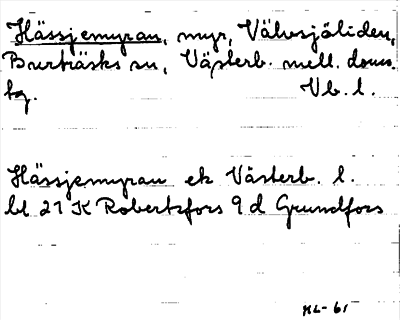 Hässjemyran, myr, Välvsjöliden,
Burträsks sn, Västerb. mell. doms.
tg. Vb. l.
Hässjemyran ek Västerb. l.
bl 21 K Robertsfors 9 d Grundfors
NL-61